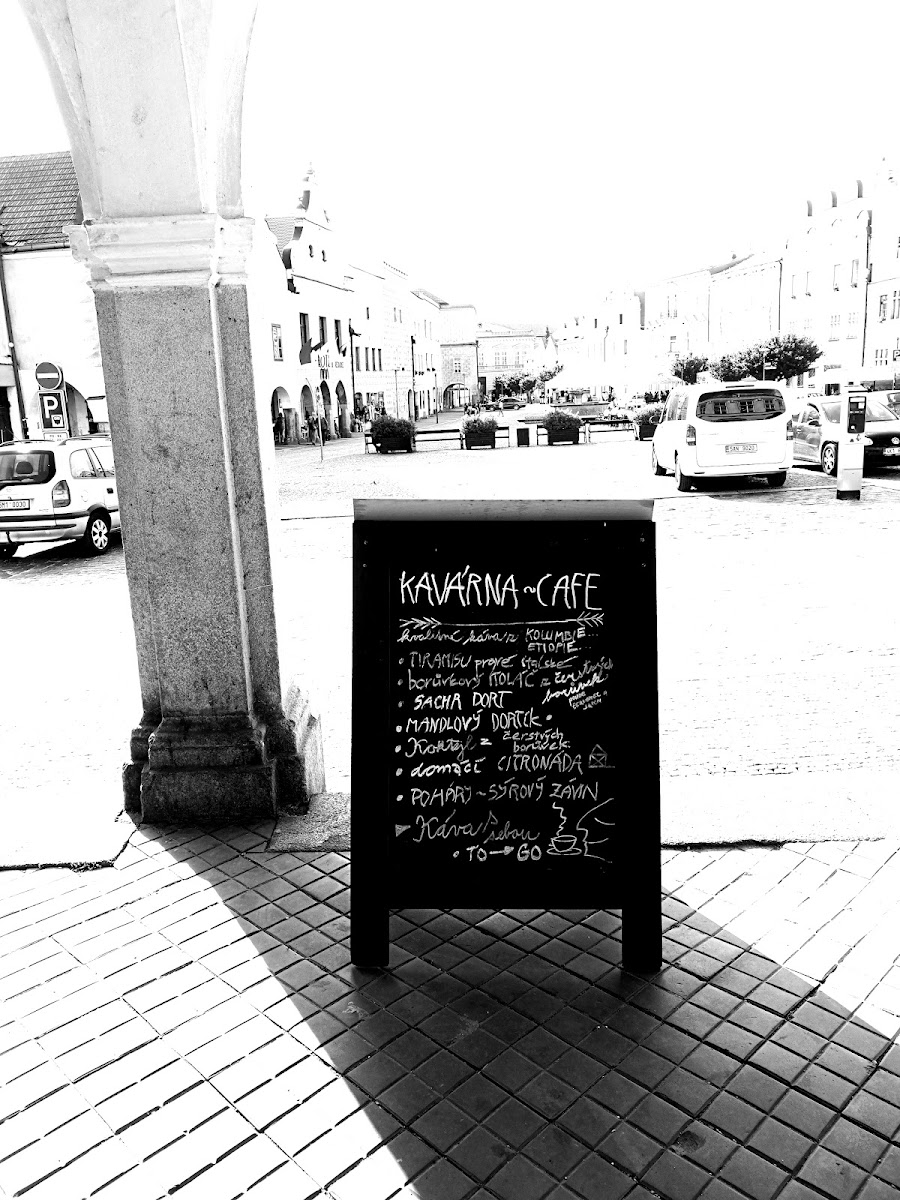 KAVÁRNA ~ CAFE
kvalitní káva z KOLUMBIE...
ETIOPIE...
• TIRAMISU pravé italské
• borůvkový KOLÁČ z čerstvých
borůvek
• SACHR DORT
• MANDLOVÝ DORTÍK •
• Koktejl z čerstvých
borůvek
• domácí CITRONÁDA
• POHÁRY ~ SÝROVÝ ZÁVIN
Káva S sebou
• TO → GO
P